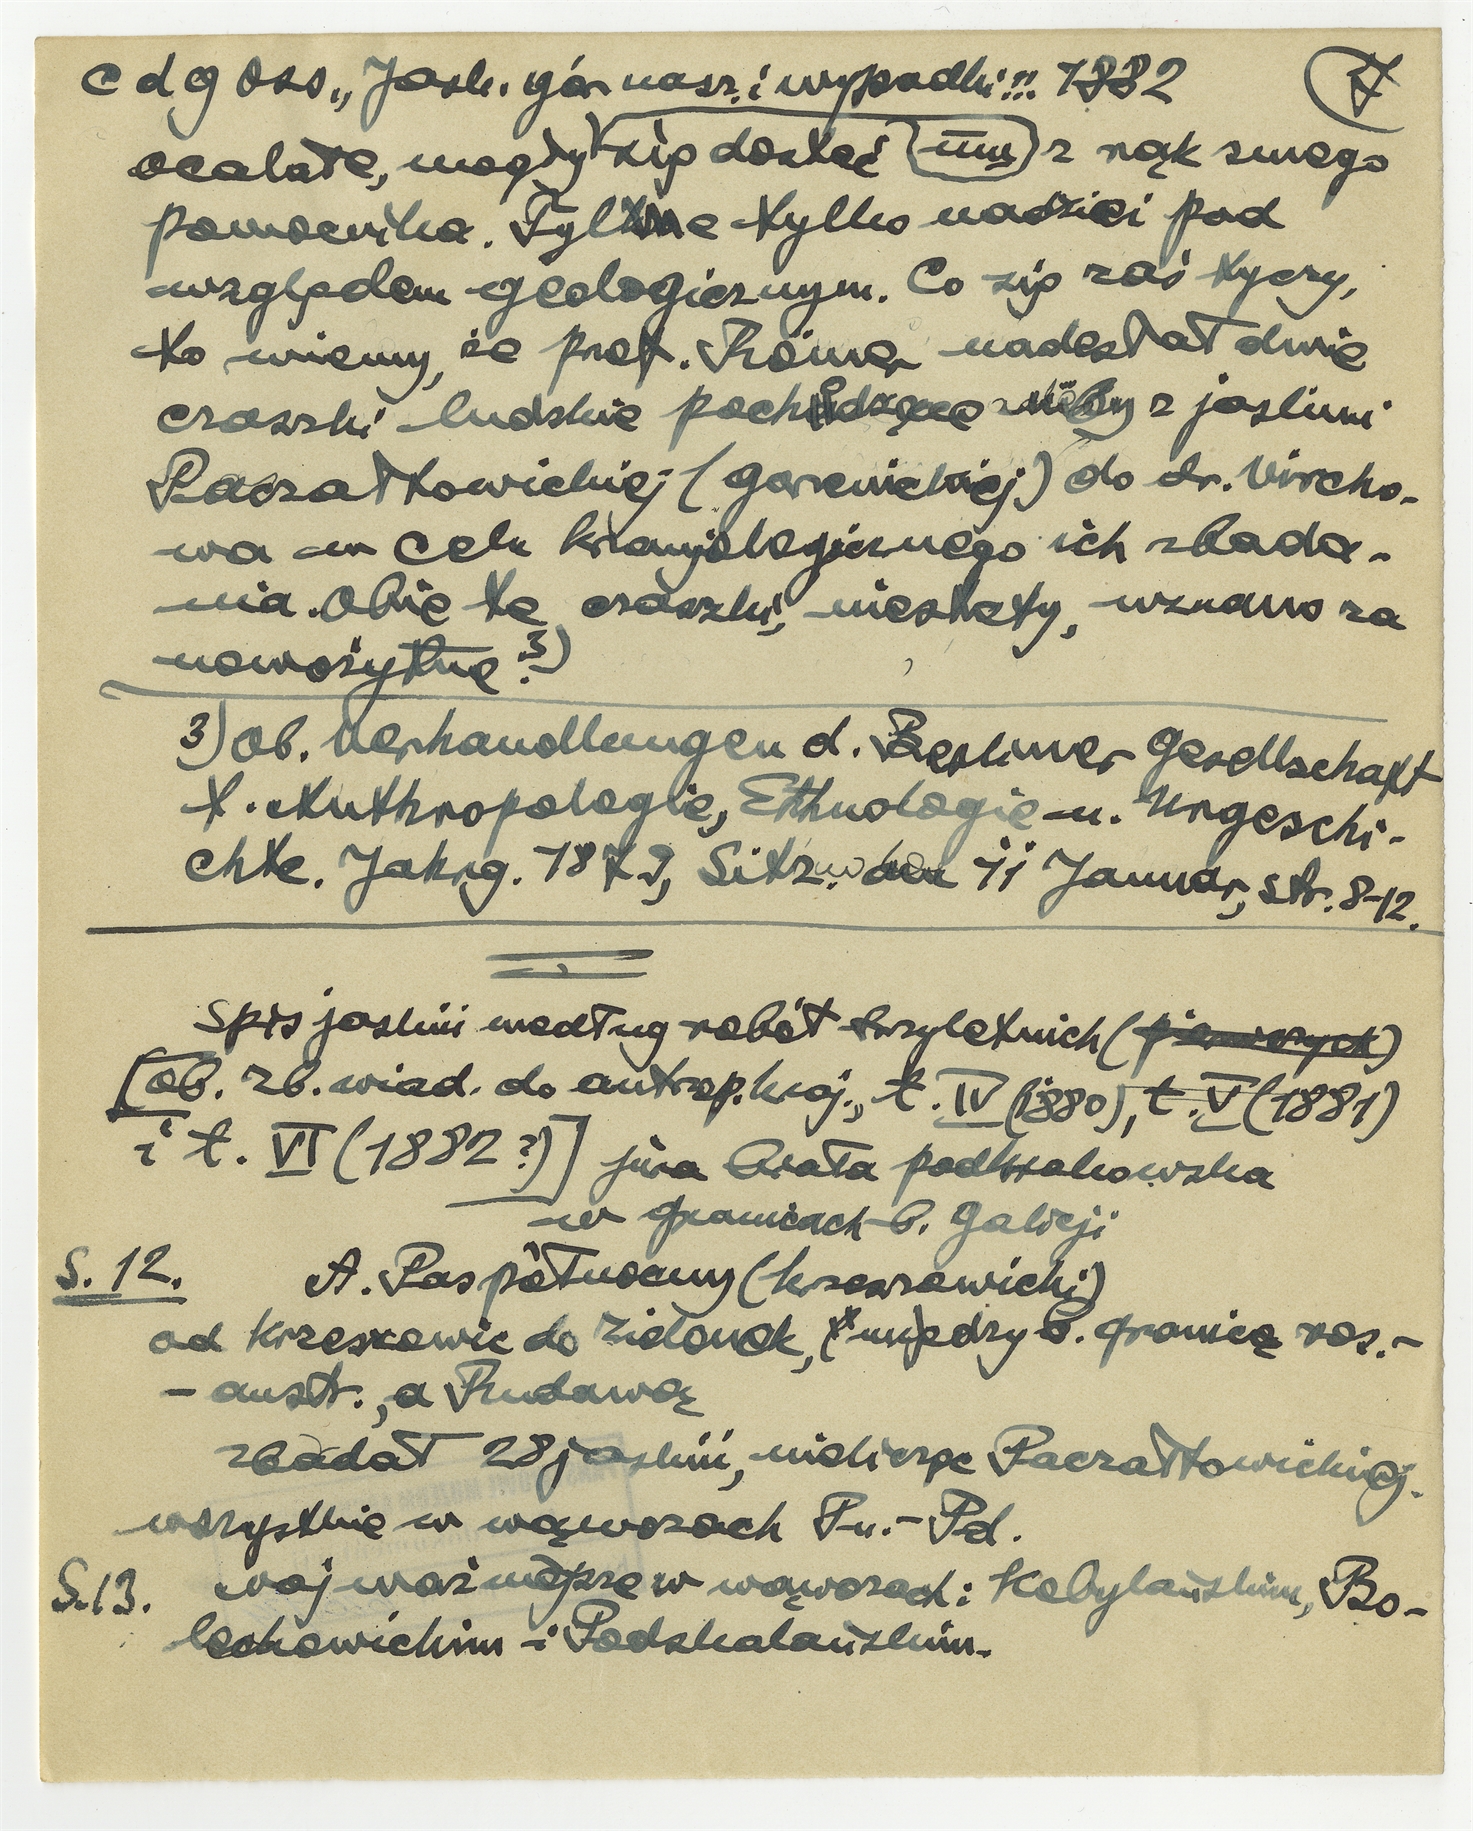 c d g Oss. „Jask. gór nasz. i wypadki"!! 1882
7
ocalałe, mogły się dostać (mu) z rąk swego
pomocnika. Tyle tylko nadziei pod
względem geologicznym. Co się zaś tyczy,
to wiemy, że prof. Römer nadesłał dwie
czaszki ludzkie pochodzące niby z jaskini
Raczałkowickiej (gorenickiej) do dr. Vircho-
wa w celu kranjologicznego ich zbada-
nia. Obie te czaszki, niestety, uznano za
nowożytne 3)
3) ob. Verhandlungen d. Berliner Gesellschaft
f. Anthropologie, Ethnologie u. Urgeschi-
chte. Jahrg. 1879, Sitz. v. den 11 Januar, str. 8-12.
Spis jaskiń według robót trzyletnich (pierwszych)
[ob. zb. wiad. do antrop. kraj., t. IV (1880), t. V (1881)
i t. VI (1882?)] jura biała podkrakowska
w granicach b. Galicji
S. 12. A. Pas północny (krzeszowicki)
od Krzeszowic do Zielonek, między b. granicą ros.-
- austr., a Rudawą
zbadał 28 jaskiń, nielicząc Paczałtowickiej.
wszystkie w wąwozach Pn.-Pd.
S.13. najważniejsze w wąwozach: Kobylańskim, Bo-
lechowickim i Podskalańskim.